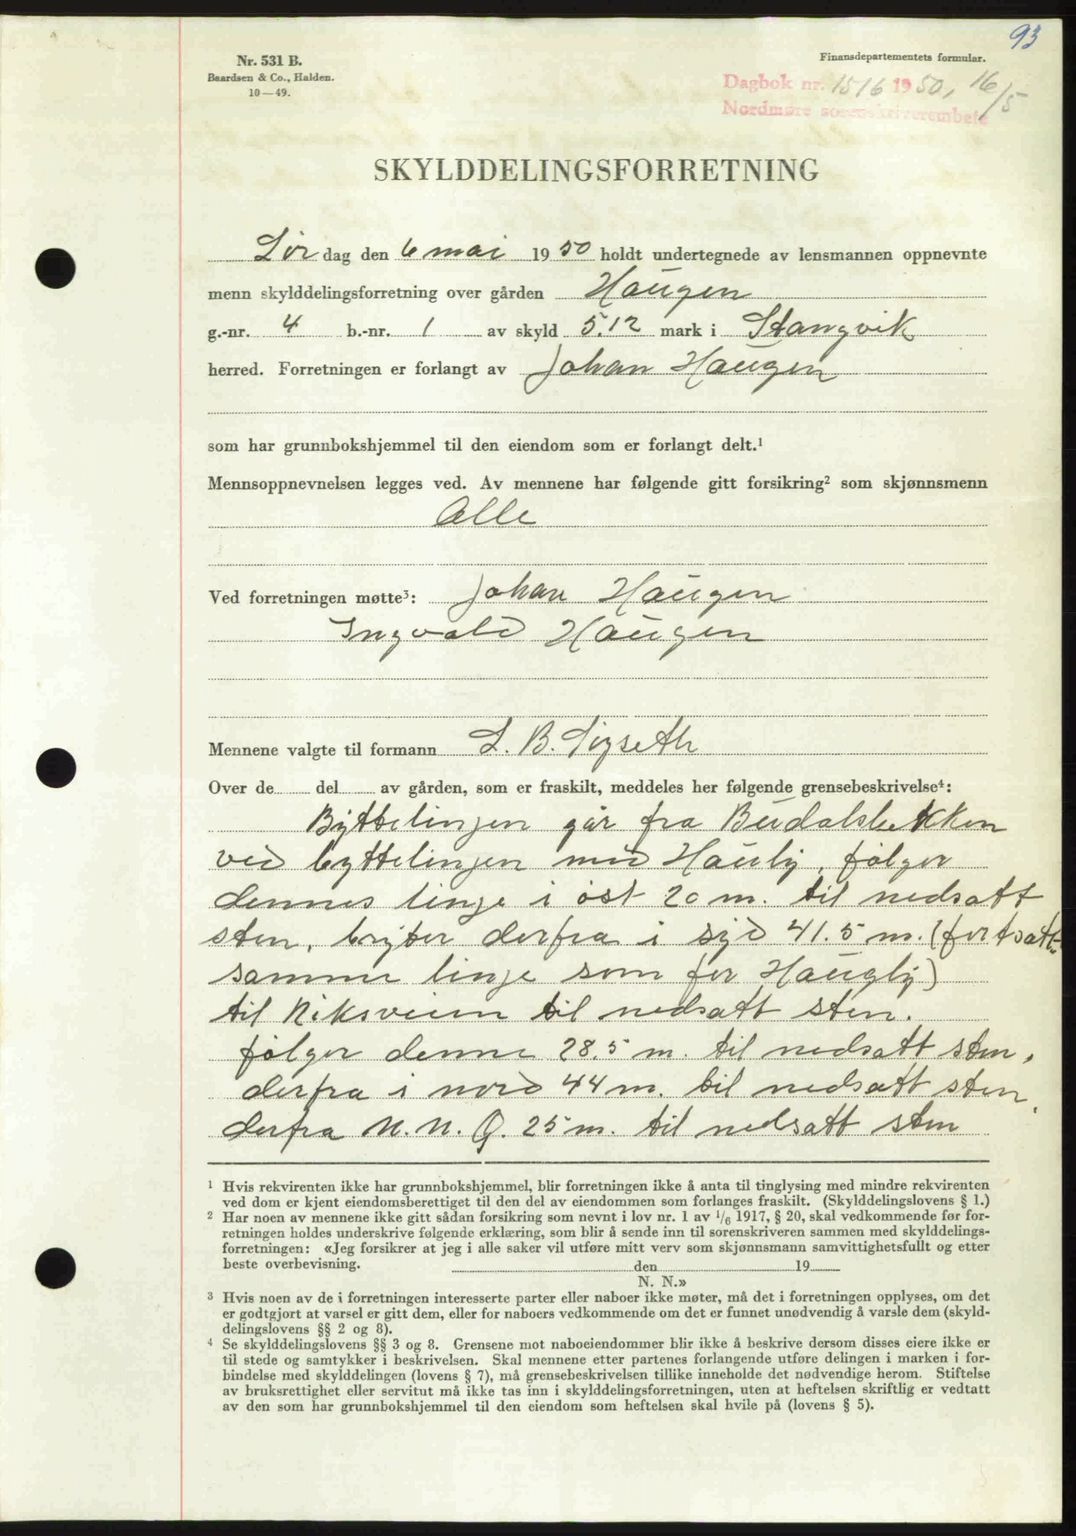 93
Nr. 531 B.
Baardsen & Co., Halden.
10—49.
Finansdepartementets formular.
Dagbok nr. 1516 1950, 16/5
Nordmøre sorenskriverembete
SKYLDDELINGSFORRETNING
Lør dag den 6 mai 1950 holdt undertegnede av lensmannen oppnevnte
menn skylddelingsforretning over gården Haugen
g.-nr. 4 b.-nr. 1 av skyld 5.12 mark i Stangvik
herred. Forretningen er forlangt av Johan Haugen
som har grunnbokshjemmel til den eiendom som er forlangt delt.¹
Mennsoppnevnelsen legges ved. Av mennene har følgende gitt forsikring² som skjønnsmenn
Alle
Ved forretningen møtte³: Johan Haugen
Ingvald Haugen
Mennene valgte til formann L. B. Sigseth
Over de del av gården, som er fraskilt, meddeles her følgende grensebeskrivelse⁴:
Byttelinjen går fra Budalsbekken
ved byttelinjen med Hauly, følger
dennes linje i øst 20 m. til nedsatt
sten, bryter derfra i syd 41.5 m. (fortsatt
samme linje som for Haugly)
til Riksveien til nedsatt sten.
følger denne 28.5 m. til nedsatt sten,
derfra i nord 44 m. til nedsatt sten,
derfra N. N. Ø. 25 m. til nedsatt sten
¹ Hvis rekvirenten ikke har grunnbokshjemmel, blir forretningen ikke å anta til tinglysing med mindre rekvirenten
ved dom er kjent eiendomsberettiget til den del av eiendommen som forlanges fraskilt. (Skylddelingslovens § 1.)
² Har noen av mennene ikke gitt sådan forsikring som nevnt i lov nr. 1 av 1/6 1917, § 20, skal vedkommende før for-
retningen holdes underskrive følgende erklæring, som blir å sende inn til sorenskriveren sammen med skylddelings-
forretningen: «Jeg forsikrer at jeg i alle saker vil utføre mitt verv som skjønnsmann samvittighetsfullt og etter
beste overbevisning. den 19
N. N.»
³ Hvis noen av de i forretningen interesserte parter eller naboer ikke møter, må det i forretningen opplyses, om det
er godtgjort at varsel er gitt dem, eller for naboers vedkommende om det er funnet unødvendig å varsle dem (skyld-
delingslovens §§ 2 og 8).
⁴ Se skylddelingslovens §§ 3 og 8. Grensene mot naboeiendommer blir ikke å beskrive dersom disses eiere ikke er
til stede og samtykker i beskrivelsen. Skal mennene etter partenes forlangende utføre delingen i marken i for-
bindelse med skylddelingen (lovens § 7), må grensebeskrivelsen tillike inneholde det nødvendige herom. Stiftelse
av bruksrettighet eller servitut må ikke tas inn i skylddelingsforretningen, uten at heftelsen skriftlig er vedtatt
av den som har grunnbokshjemmel til den eiendom som heftelsen skal hvile på (lovens § 5).